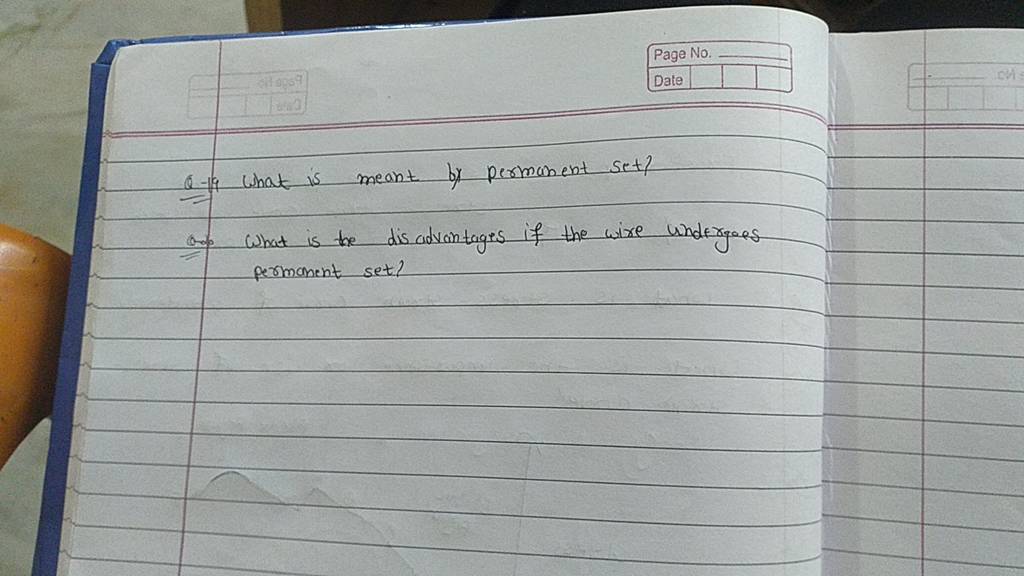 Page No.
Date
Q-19 What is meant by permanent set?
What is the disadvantages if the wire undergoes
permanent set?